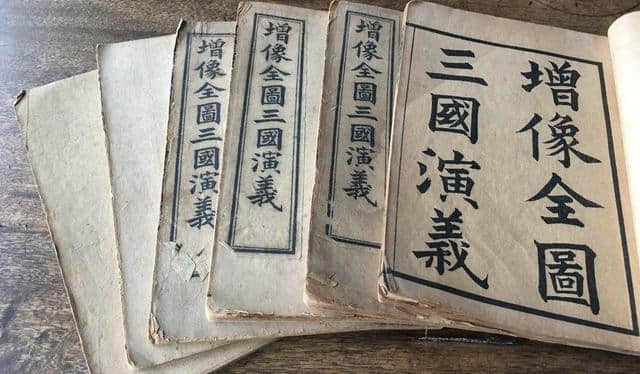 增像全圖三國演義
增像全圖三國演義
增像全圖三國演義
增像全圖
三國演義